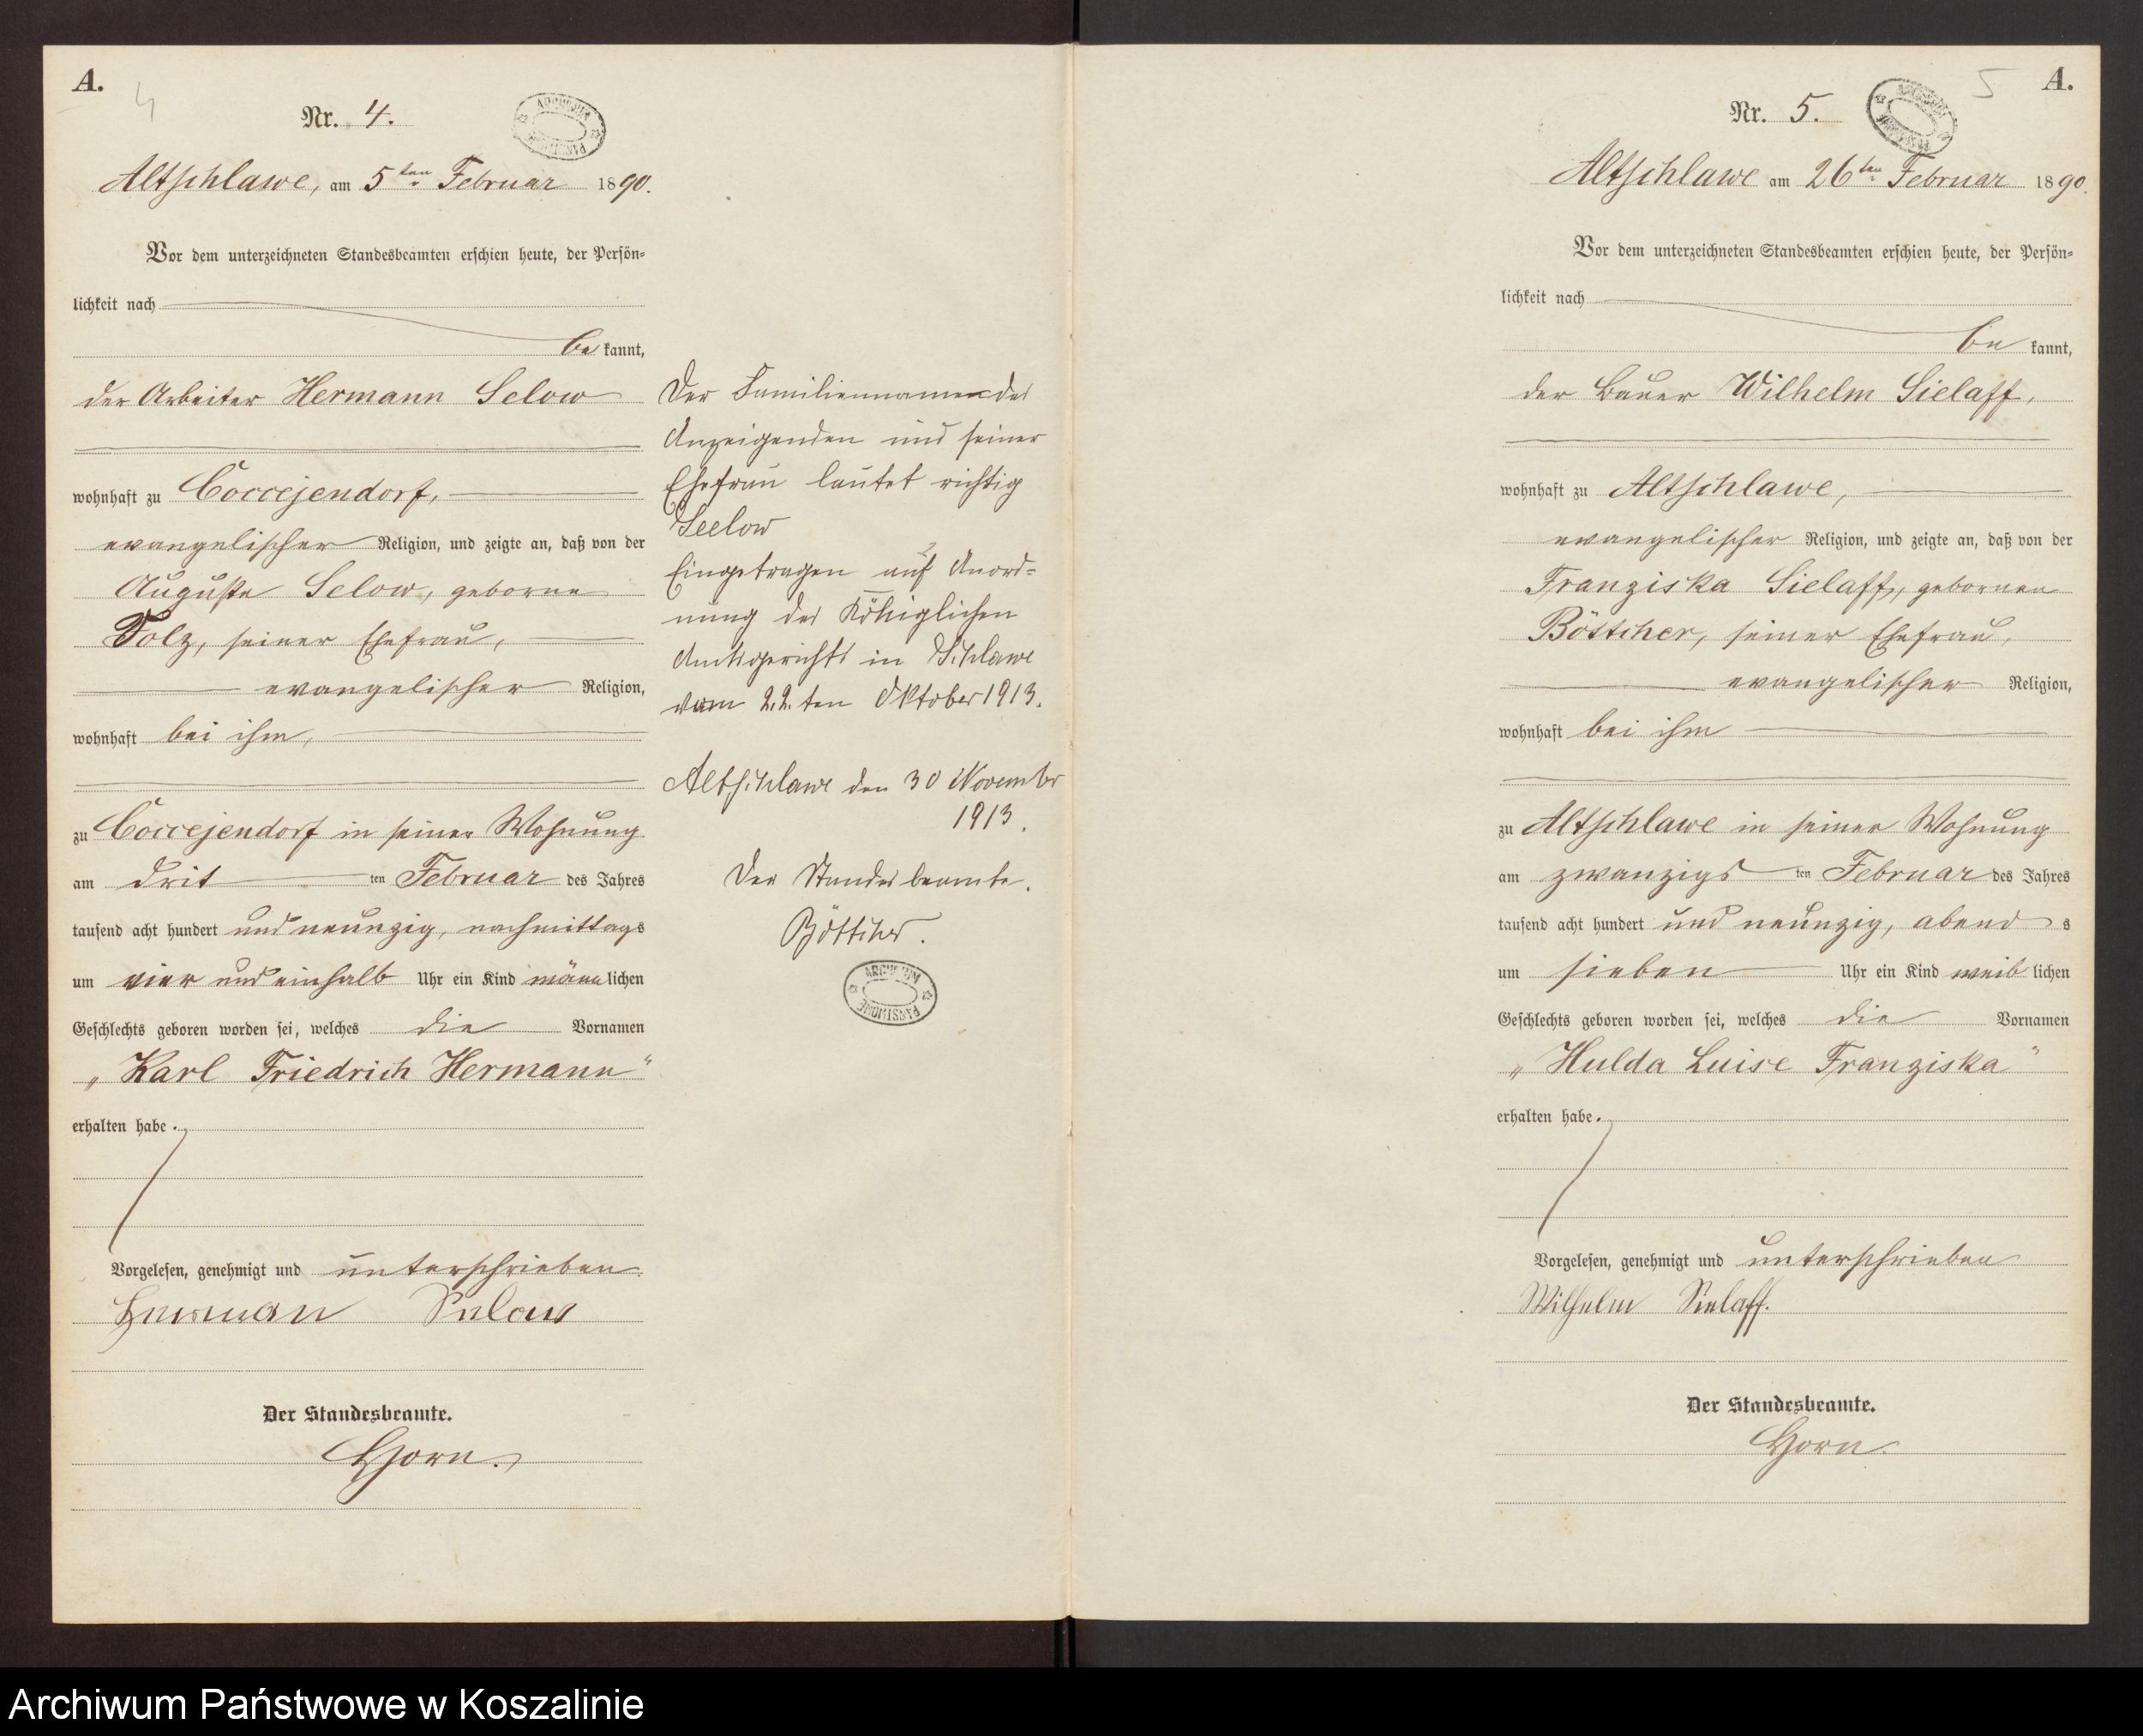 A.
4
Nr. 4.
Altschlawe, am 5ten Februar 1890.
Vor dem unterzeichneten Standesbeamten erschien heute, der Persön-
lichkeit nach
be kannt,
der Arbeiter Hermann Selow
wohnhaft zu Coccejendorf,
evangelischer Religion, und zeigte an, daß von der
Auguste Selow, geborne
Volz, seiner Ehefrau,
evangelischer Religion,
wohnhaft bei ihm,
zu Coccejendorf in seiner Wohnung
am dritten Februar des Jahres
tausend acht hundert und neunzig, nachmittags
um vier und einhalb Uhr ein Kind männlichen
Geschlechts geboren worden sei, welches die Vornamen
„Karl Friedrich Hermann“
erhalten habe.
Vorgelesen, genehmigt und unterschrieben
Herman Selow
Der Standesbeamte.
Horn.
Der Familienname des
Anzeigenden und seiner
Ehefrau lautet richtig
Seelow
Eingetragen auf Anord-
nung des Königlichen
Amtsgerichts in Schlawe
vom 22.ten Oktober 1913.
Altschlawe den 30 November
1913.
Der Standesbeamte.
Böttcher.
ARCHIWUM PAŃSTWOWE
A.
5
Nr. 5.
Altschlawe am 26ten Februar 1890.
Vor dem unterzeichneten Standesbeamten erschien heute, der Persön-
lichkeit nach
be kannt,
der Bauer Wilhelm Sielaff,
wohnhaft zu Altschlawe,
evangelischer Religion, und zeigte an, daß von der
Franziska Sielaff, gebornen
Böttcher, seiner Ehefrau,
evangelischer Religion,
wohnhaft bei ihm
zu Altschlawe in seiner Wohnung
am zwanzigsten Februar des Jahres
tausend acht hundert und neunzig, abends
um sieben Uhr ein Kind weiblichen
Geschlechts geboren worden sei, welches die Vornamen
„Hulda Luise Franziska“
erhalten habe.
Vorgelesen, genehmigt und unterschrieben
Wilhelm Sielaff.
Der Standesbeamte.
Horn.
Archiwum Państwowe w Koszalinie